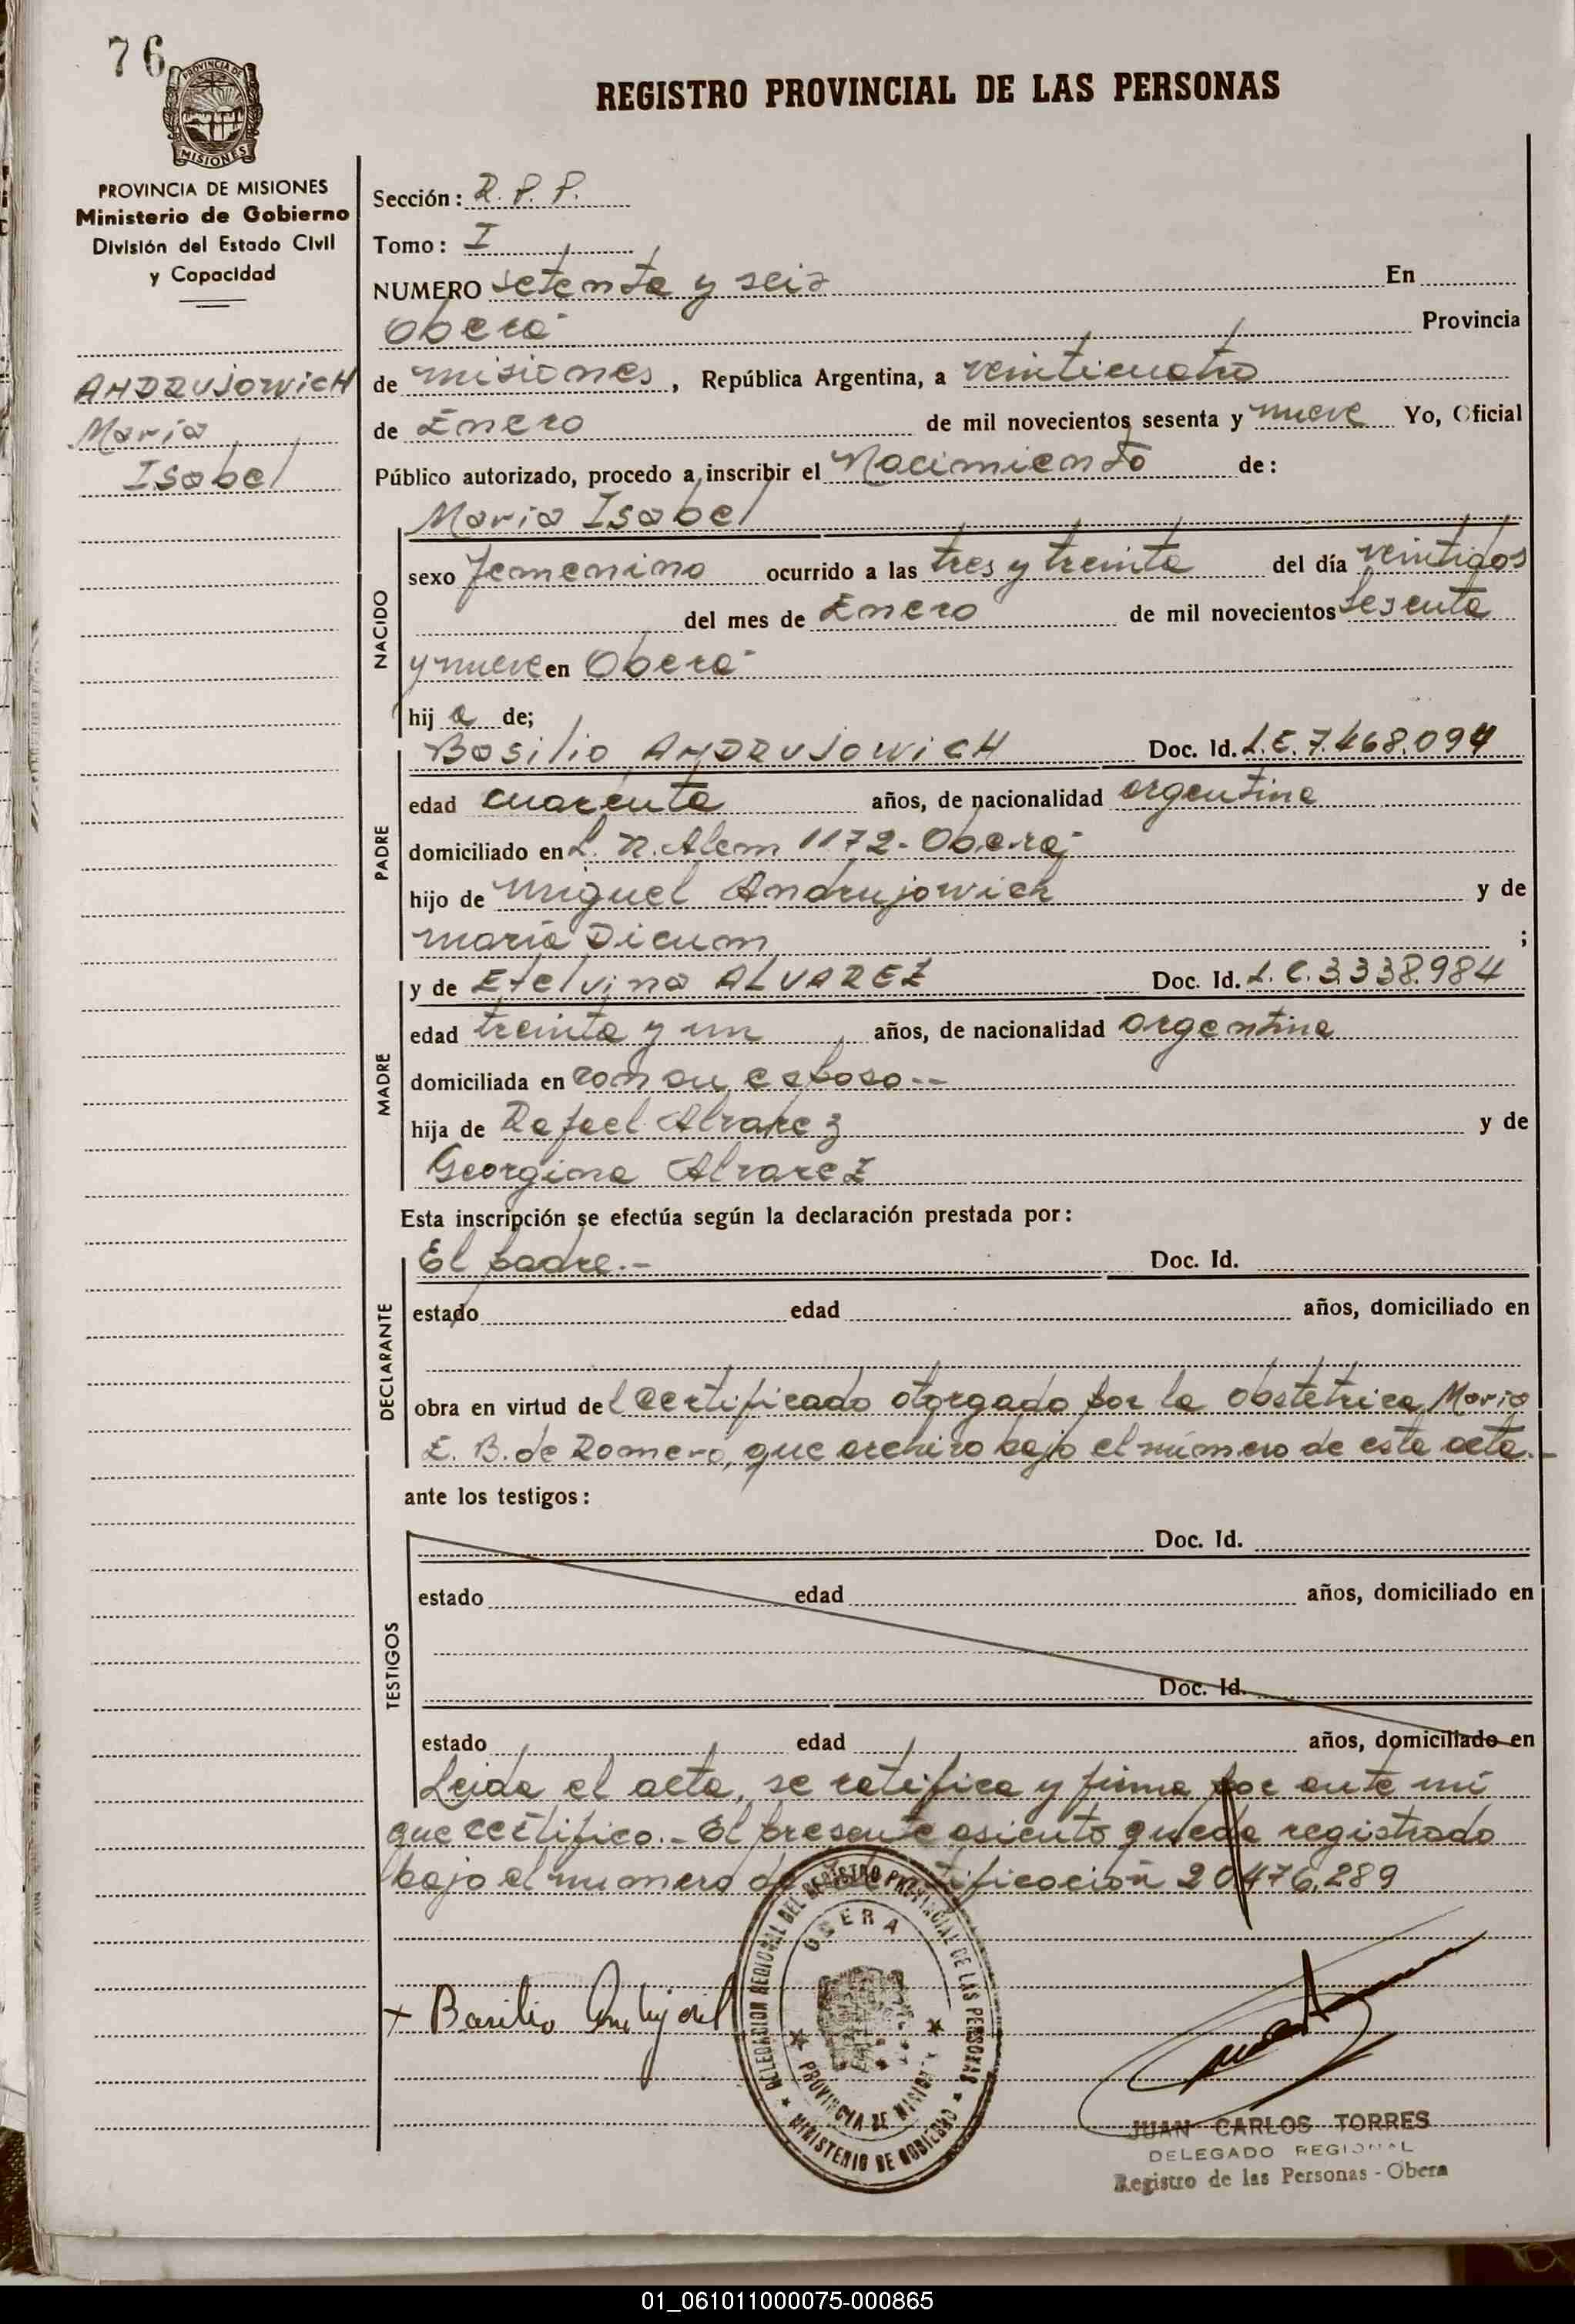 76
PROVINCIA DE
MISIONES
REGISTRO PROVINCIAL DE LAS PERSONAS
PROVINCIA DE MISIONES
Ministerio de Gobierno
División del Estado Civil
y Capacidad
ANDRUJOWICH
María
Isabel
Sección: R. P. P.
Tomo: I
NUMERO setenta y seis En
Oberá Provincia
de misiones, República Argentina, a veinticuatro
de Enero de mil novecientos sesenta y nueve Yo, Oficial
Público autorizado, procedo a inscribir el Nacimiento de:
María Isabel
NACIDO
sexo femenino ocurrido a las tres y treinta del día veintidos
del mes de Enero de mil novecientos sesenta
y nueve en Oberá
hij a de;
PADRE
Basilio ANDRUJOWICH Doc. Id. L.E. 7.468.094
edad cuarenta años, de nacionalidad argentina
domiciliado en L. N. Alem 1172 - Oberá
hijo de Miguel Andrujowich y de
maría Dicum ;
MADRE
y de Etelvina ALVAREZ Doc. Id. L.C. 3.338.984
edad treinta y un años, de nacionalidad argentina
domiciliada en con su esposo.--
hija de Rafael Alvarez y de
Georgina Alvarez
Esta inscripción se efectúa según la declaración prestada por:
DECLARANTE
El padre.- Doc. Id.
estado edad años, domiciliado en
obra en virtud del certificado otorgado por la obstetrica María
E. B. de Romero, que archivo bajo el número de esta acta.-
ante los testigos:
TESTIGOS
Doc. Id.
estado edad años, domiciliado en
Doc. Id.
estado edad años, domiciliado en
Leida el acta, se ratifica y firma por ante mi
que certifico.- El presente asiento queda registrado
bajo el numero de identificación 20.476.289
DELEGACION REGIONAL DEL REGISTRO PROVINCIAL DE LAS PERSONAS
OBERA
PROVINCIA DE MISIONES
MINISTERIO DE GOBIERNO
+ Basilio
JUAN CARLOS TORRES
DELEGADO REGIONAL
Registro de las Personas - Obera
01_061011000075-000865